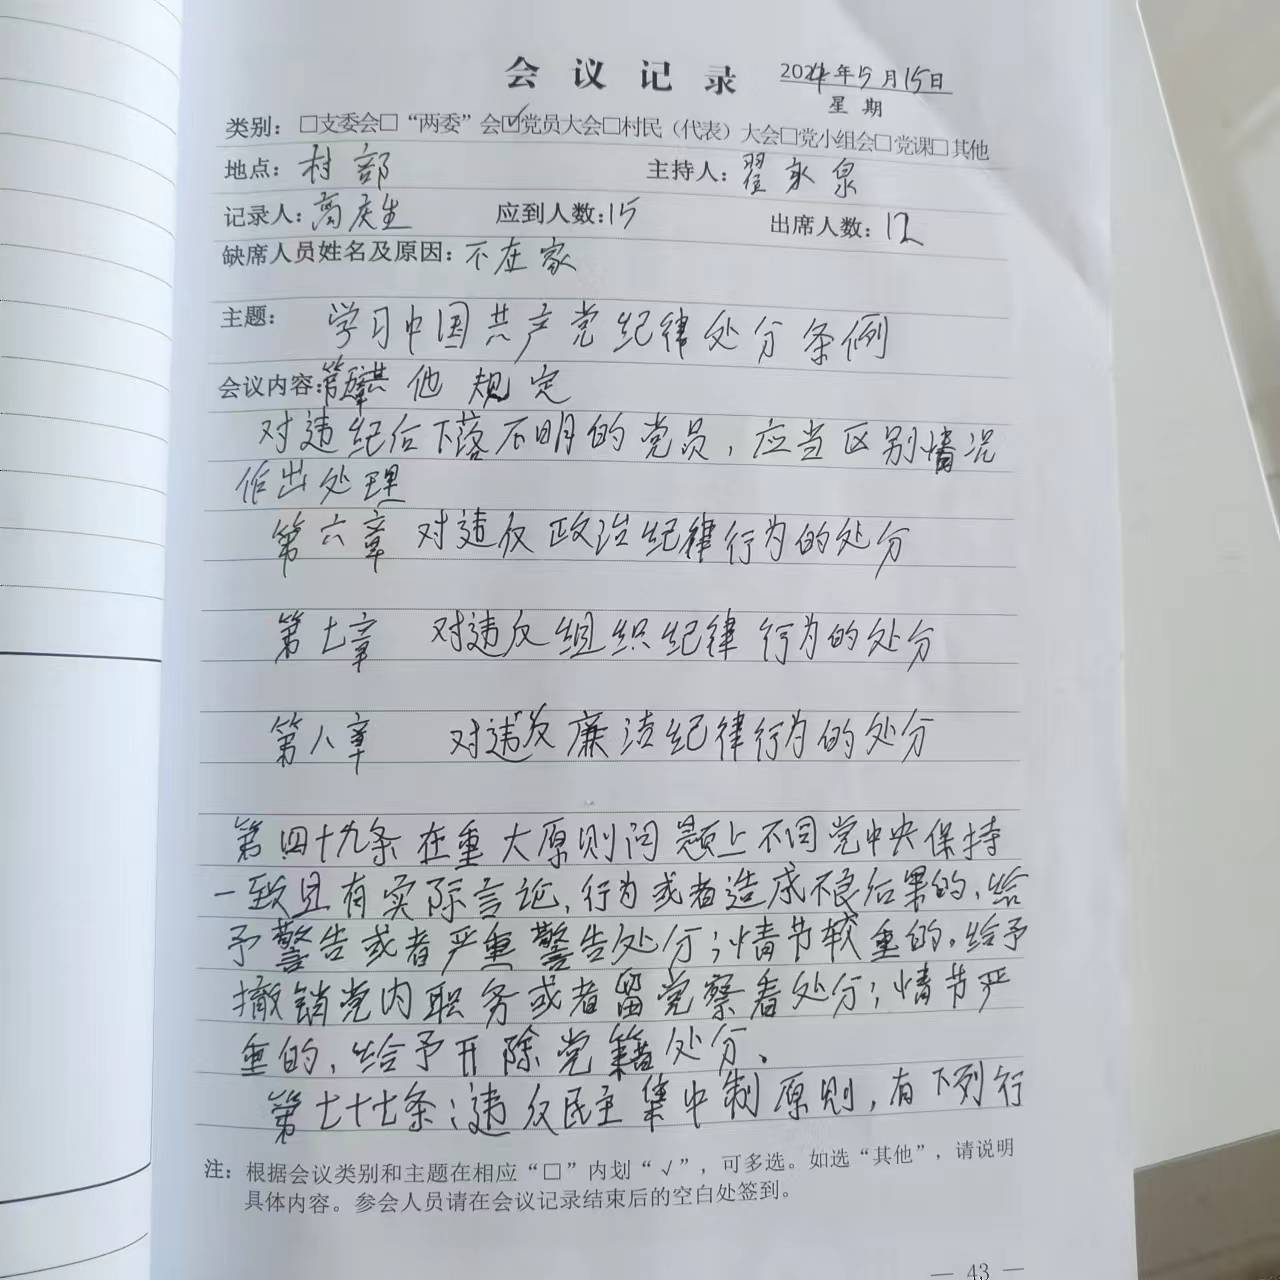 会议记录 2024年5月15日
星期
类别：□支委会□“两委”会☑党员大会□村民（代表）大会□党小组会□党课□其他
地点：村部 主持人：翟永泉
记录人：高庆生 应到人数：15 出席人数：12
缺席人员姓名及原因：不在家
主题：学习中国共产党纪律处分条例
会议内容：第五章其他规定
对违纪后下落不明的党员，应当区别情况
作出处理
第六章 对违反政治纪律行为的处分
第七章 对违反组织纪律行为的处分
第八章 对违反廉洁纪律行为的处分
第四十九条在重大原则问题上不同党中央保持
一致且有实际言论、行为或者造成不良后果的，给
予警告或者严重警告处分；情节较重的，给予
撤销党内职务或者留党察看处分；情节严
重的，给予开除党籍处分。
第七十七条：违反民主集中制原则，有下列行
注：根据会议类别和主题在相应“□”内划“√”，可多选。如选“其他”，请说明
具体内容。参会人员请在会议记录结束后的空白处签到。
— 43 —